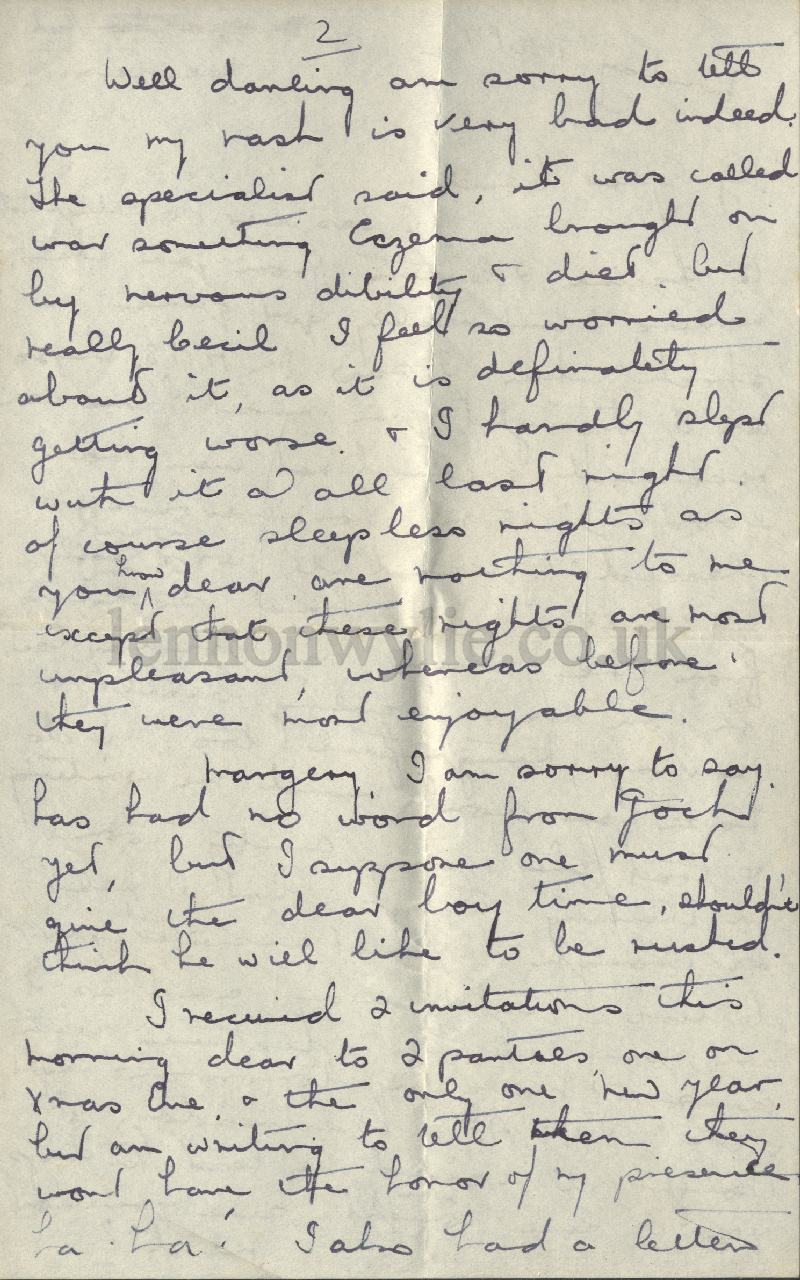 2
Well darling am sorry to tell
you my rash is very bad indeed.
The specialist said, it was called
was something Eczema brought on
by nervous dibility & diet, but
really Cecil I feel so worried
about it, as it is definately
getting worse. & I hardly slept
with it at all last night.
of course sleepless nights as
you know dear are nothing to me
except that these nights are most
unpleasant, whereas before
they were most enjoyable.
Margery, I am sorry to say,
has had no word from Jock
yet, but I suppose one must
give the dear boy time, shouldn't
think he will like to be rushed.
I received 2 invitations this
morning dear to 2 parties, one on
Xmas Eve, & the only one New Year,
but am writing to tell them they
wont have the honor of my presence
ha. ha! I also had a letter
lennonwylie.co.uk